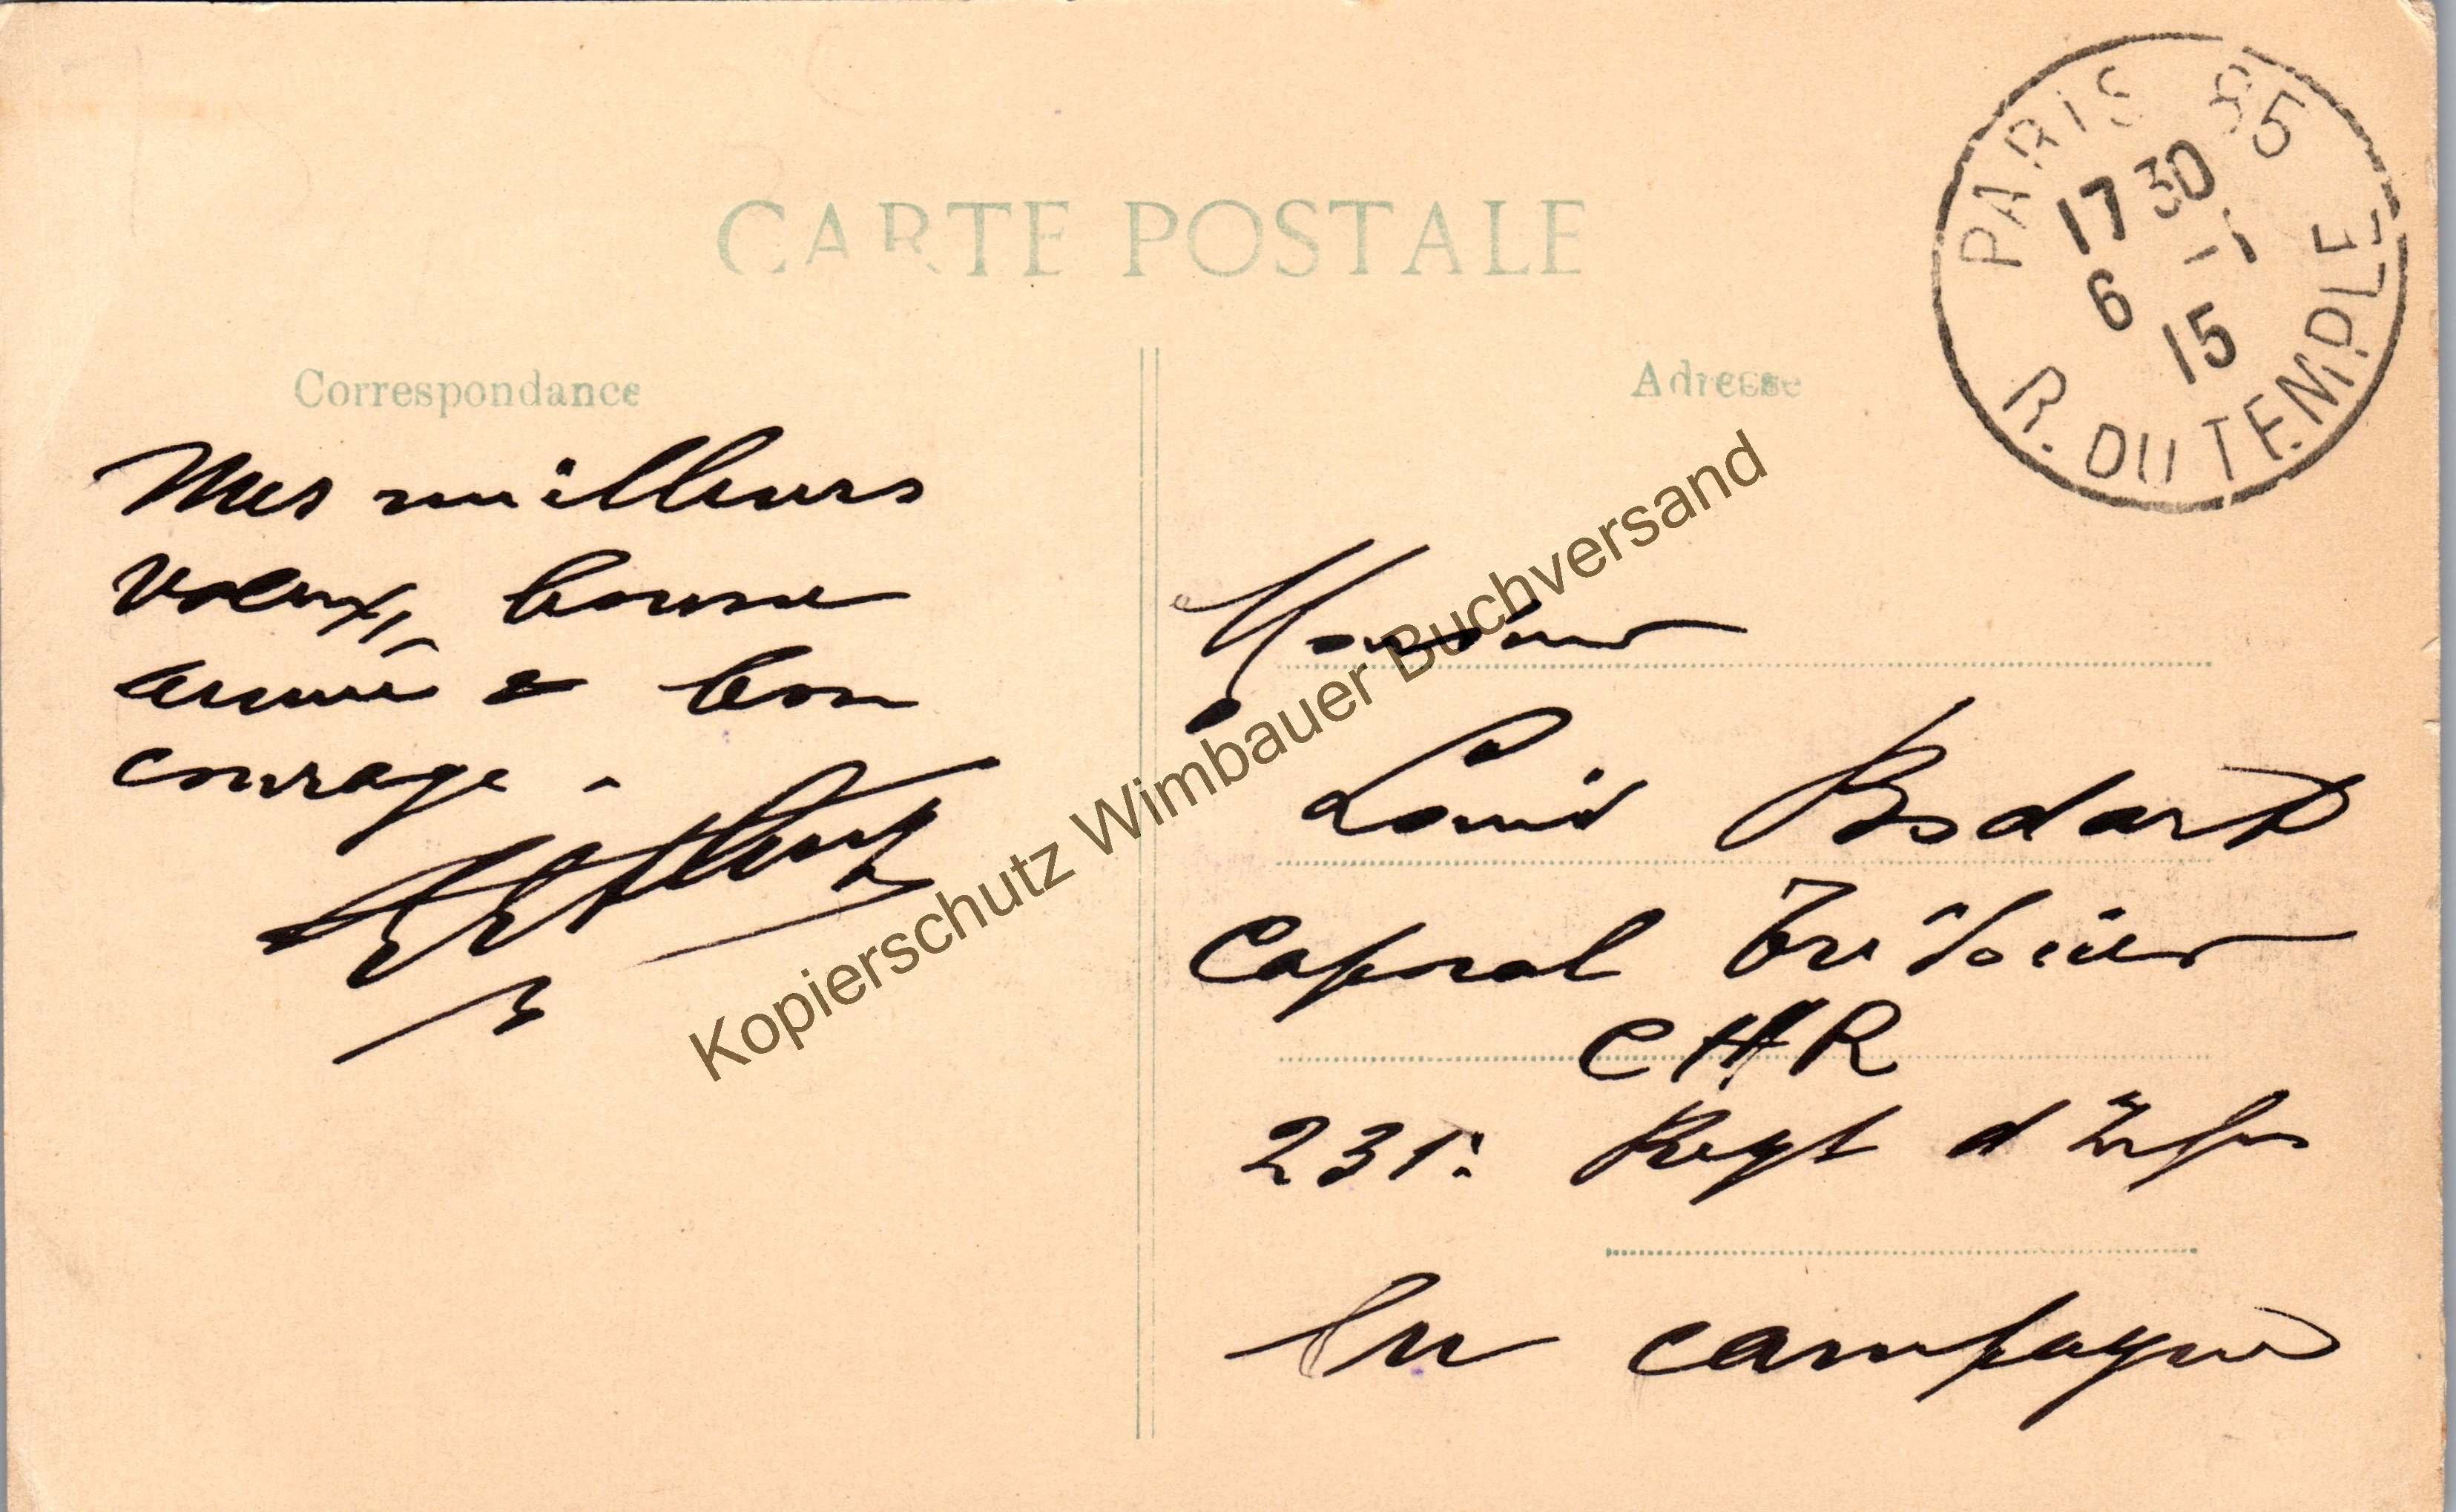 CARTE POSTALE
Correspondance
Mes meilleurs
voeux, bonne
année & bon
courage -
Adresse
Monsieur
Louis Bodard
Caporal
CHR
231e Regt d'Infie
En campagne
PARIS 85
17 30
6 -1
15
R. DU TEMPLE
Kopierschutz Wimbauer Buchversand